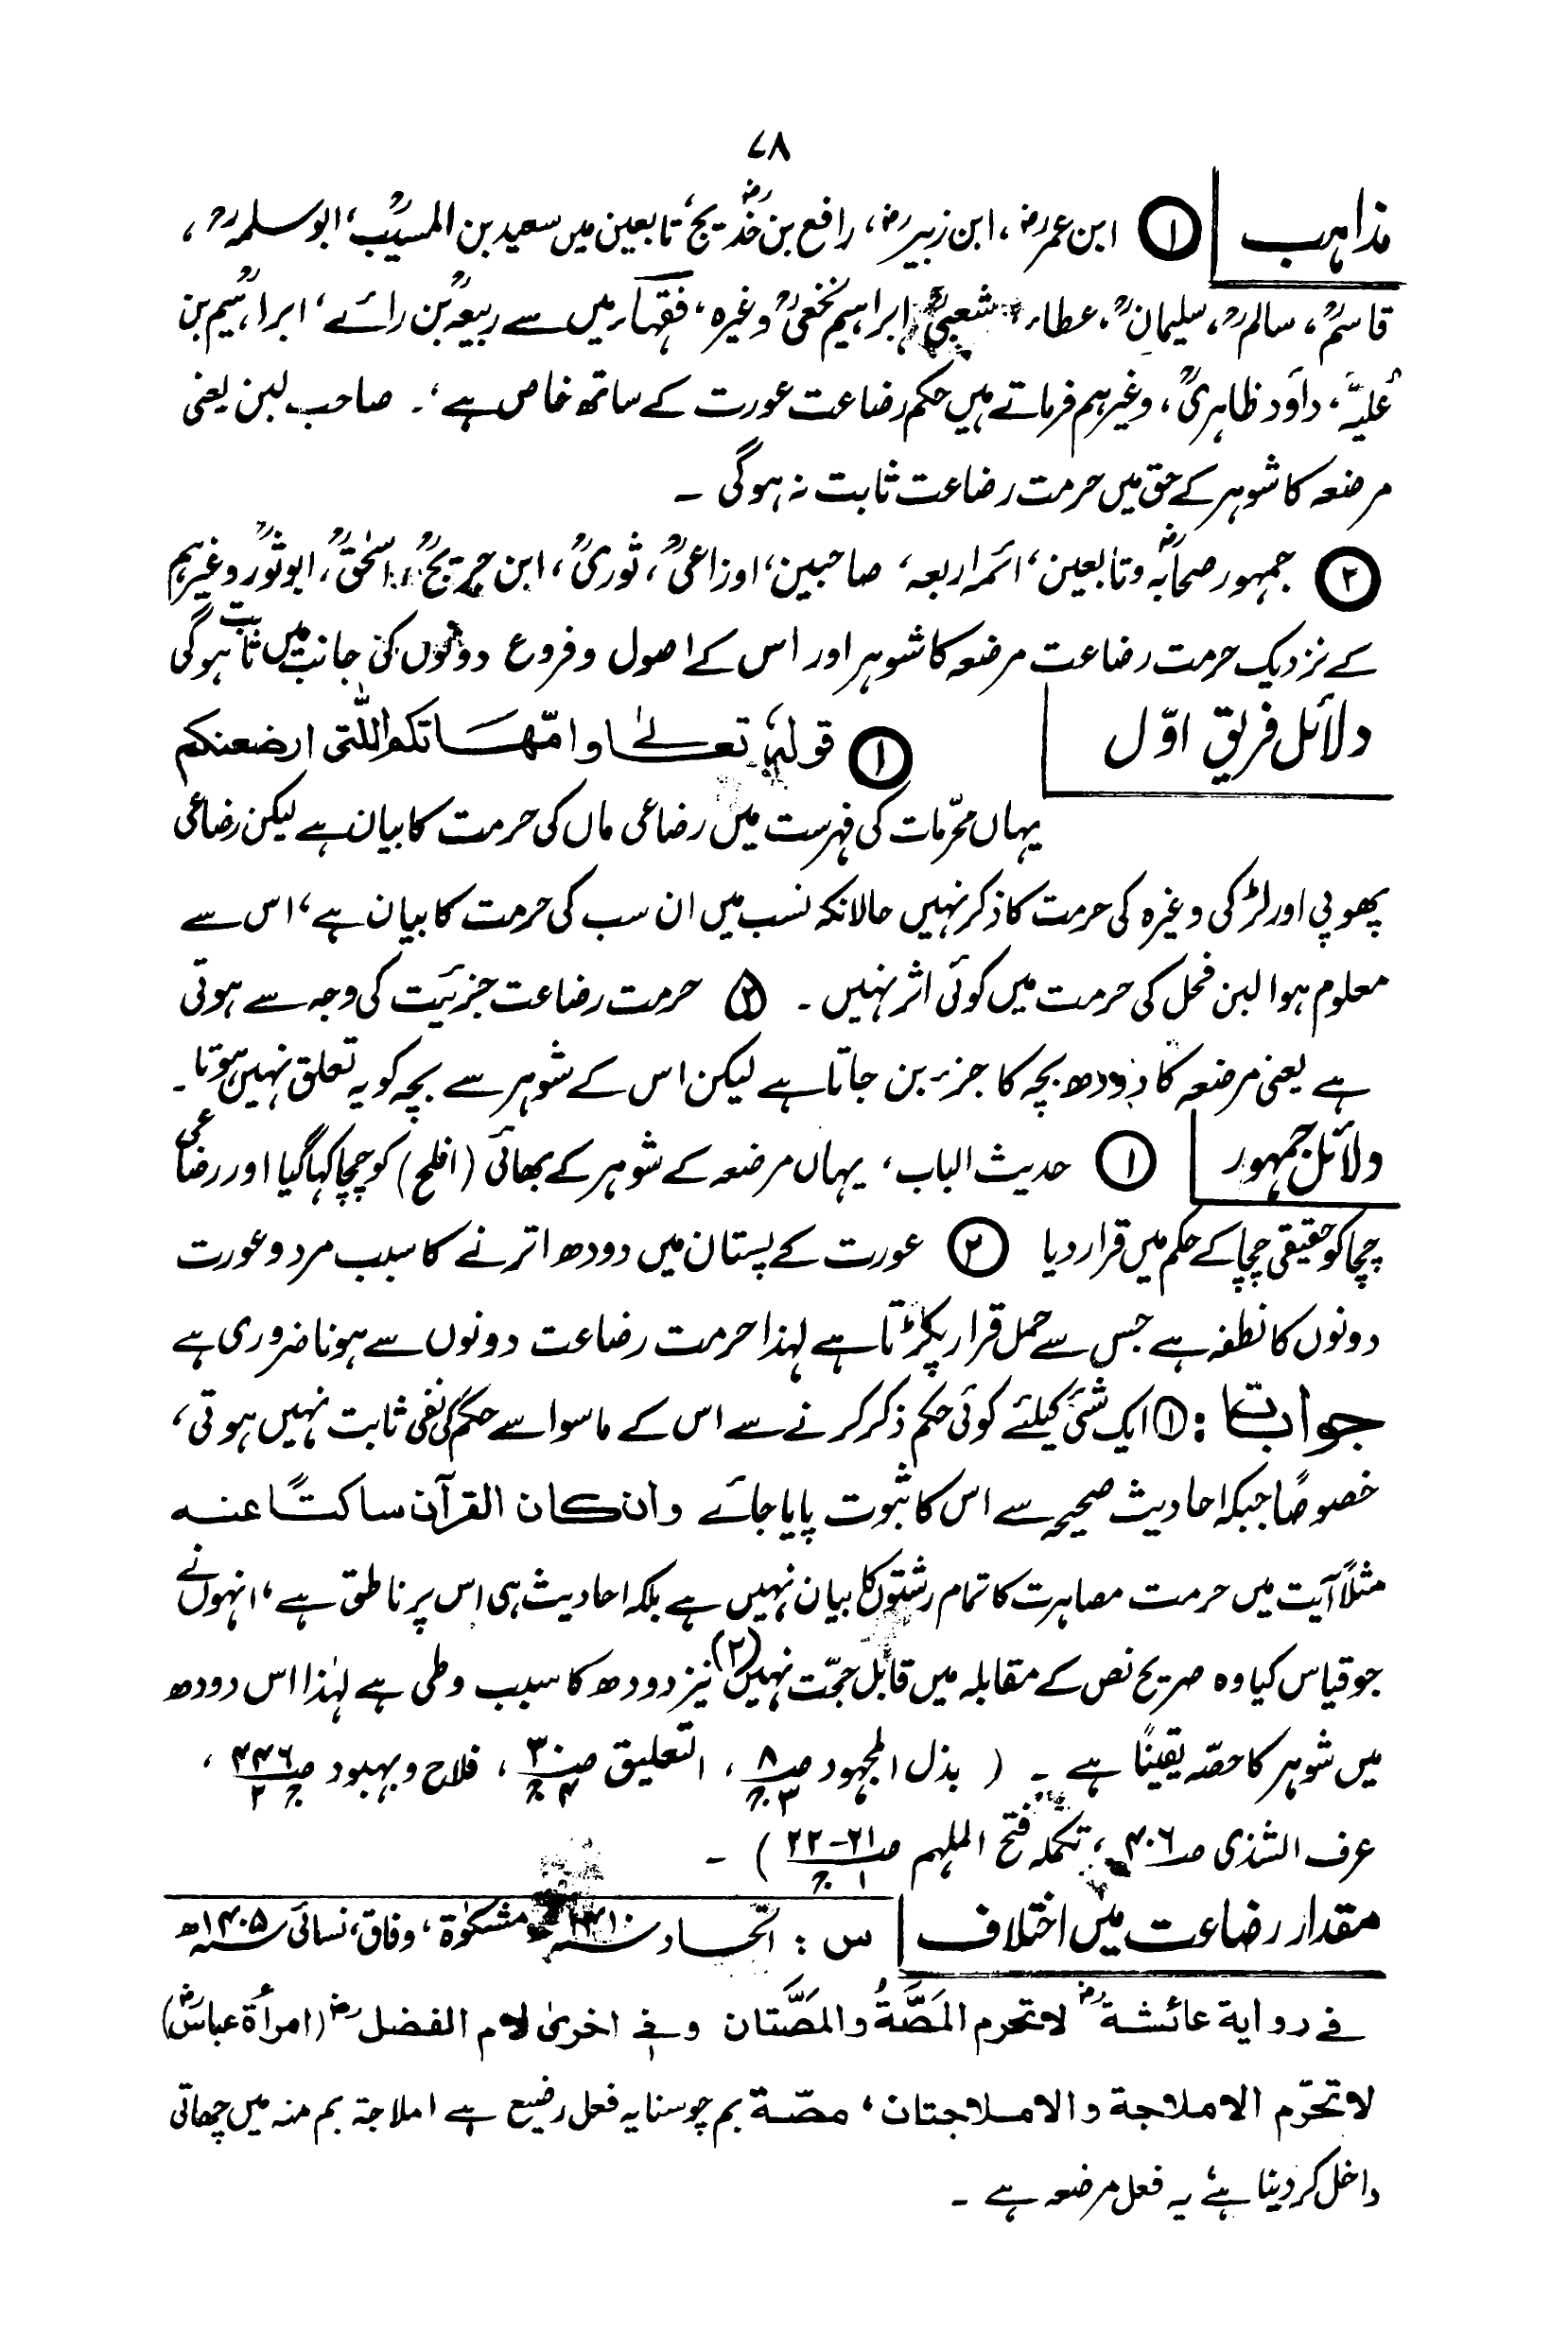 ۷۸
مذاہب ① ابن عمرؓ، ابن زبیرؓ، رافع بن خدیجؓ، تابعین میں سعید بن المسیبؒ، ابو سلمہؒ،
قاسمؒ، سالمؒ، سلیمانؒ، عطاء، شعبیؒ، ابراہیم نخعیؒ وغیرہ، فقہاء میں سے ربیعہؒ بن رائے، ابراہیم بن
عُلیَّہ، داؤد ظاہریؒ، وغیرہم فرماتے ہیں حکم رضاعت عورت کے ساتھ خاص ہے،۔ صاحب لبن یعنی
مرضعہ کا شوہر کے حق میں حرمت رضاعت ثابت نہ ہوگی ۔
② جمہور صحابہؓ و تابعین، ائمہ اربعہ، صاحبین، اوزاعیؒ، ثوریؒ، ابن جریجؒ، اسحٰقؒ، ابو ثورؒ وغیرہم
کے نزدیک حرمت رضاعت مرضعہ کا شوہر اور اس کے اصول و فروع دونوں کی جانب میں ثابت ہوگی
دلائل فریق اوّل ① قولہٗ تعالےٰ وامّھاتکم اللّٰتی ارضعنکم
یہاں محرّمات کی فہرست میں رضاعی ماں کی حرمت کا بیان ہے لیکن رضاعی
پھوپی اور لڑکی وغیرہ کی حرمت کا ذکر نہیں حالانکہ نسب میں ان سب کی حرمت کا بیان ہے، اس سے
معلوم ہوا لبن فحل کی حرمت میں کوئی اثر نہیں ۔ ② حرمت رضاعت جزئیت کی وجہ سے ہوتی
ہے یعنی مرضعہ کا دودھ بچہ کا جزء بن جاتا ہے لیکن اس کے شوہر سے بچہ کو یہ تعلق نہیں ہوتا ۔
دلائل جمہور ① حدیث الباب، یہاں مرضعہ کے شوہر کے بھائی (افلح) کو چچا کہا گیا اور رضاعی
چچا کو حقیقی چچا کے حکم میں قرار دیا ② عورت کے پستان میں دودھ اترنے کا سبب مرد و عورت
دونوں کا نطفہ ہے جس سے حمل قرار پکڑتا ہے لہذا حرمت رضاعت دونوں سے ہونا ضروری ہے
جوابات : ① ایک شئی کیلئے کوئی حکم ذکر کرنے سے اس کے ماسوا سے حکم کی نفی ثابت نہیں ہوتی،
خصوصًا جبکہ احادیث صحیحہ سے اس کا ثبوت پایا جائے وان کان القرآن ساکتًا عنہ
مثلاً آیت میں حرمت مصاہرت کا تمام رشتوں کا بیان نہیں ہے بلکہ احادیث ہی اس پر ناطق ہے، انہوں نے
جو قیاس کیا وہ صریح نص کے مقابلہ میں قابل حجّت نہیں (۲) نیز دودھ کا سبب وطی ہے لہٰذا اس دودھ
میں شوہر کا حصّہ یقینًا ہے ۔ ( بذل المجہود ص۸ ج۳، التعلیق ص۳۰ ج۴، فلاح و بہبود ص۴۴۶ ج۲،
عرف الشذی ص۴۰۶، تکملہ فتح الملہم ص۲۱-۲۲ ج۱ ) ۔
مقدار رضاعت میں اختلاف س : اتحاد مشکوٰۃ، وفاق، نسائی سنہ ۱۴۰۵ھ
فی روایۃ عائشۃؓ لا تحرم المَصَّۃُ والمَصَّتان وفی اخریٰ لام الفضلؓ (امرأۃ عباسؓ)
لا تحرّم الاملاجۃ والاملاجتان، مصّۃ بم چوسنا یہ فعل رضیع ہے املاجۃ بم منہ میں چھاتی
داخل کر دینا ہے یہ فعل مرضعہ ہے ۔